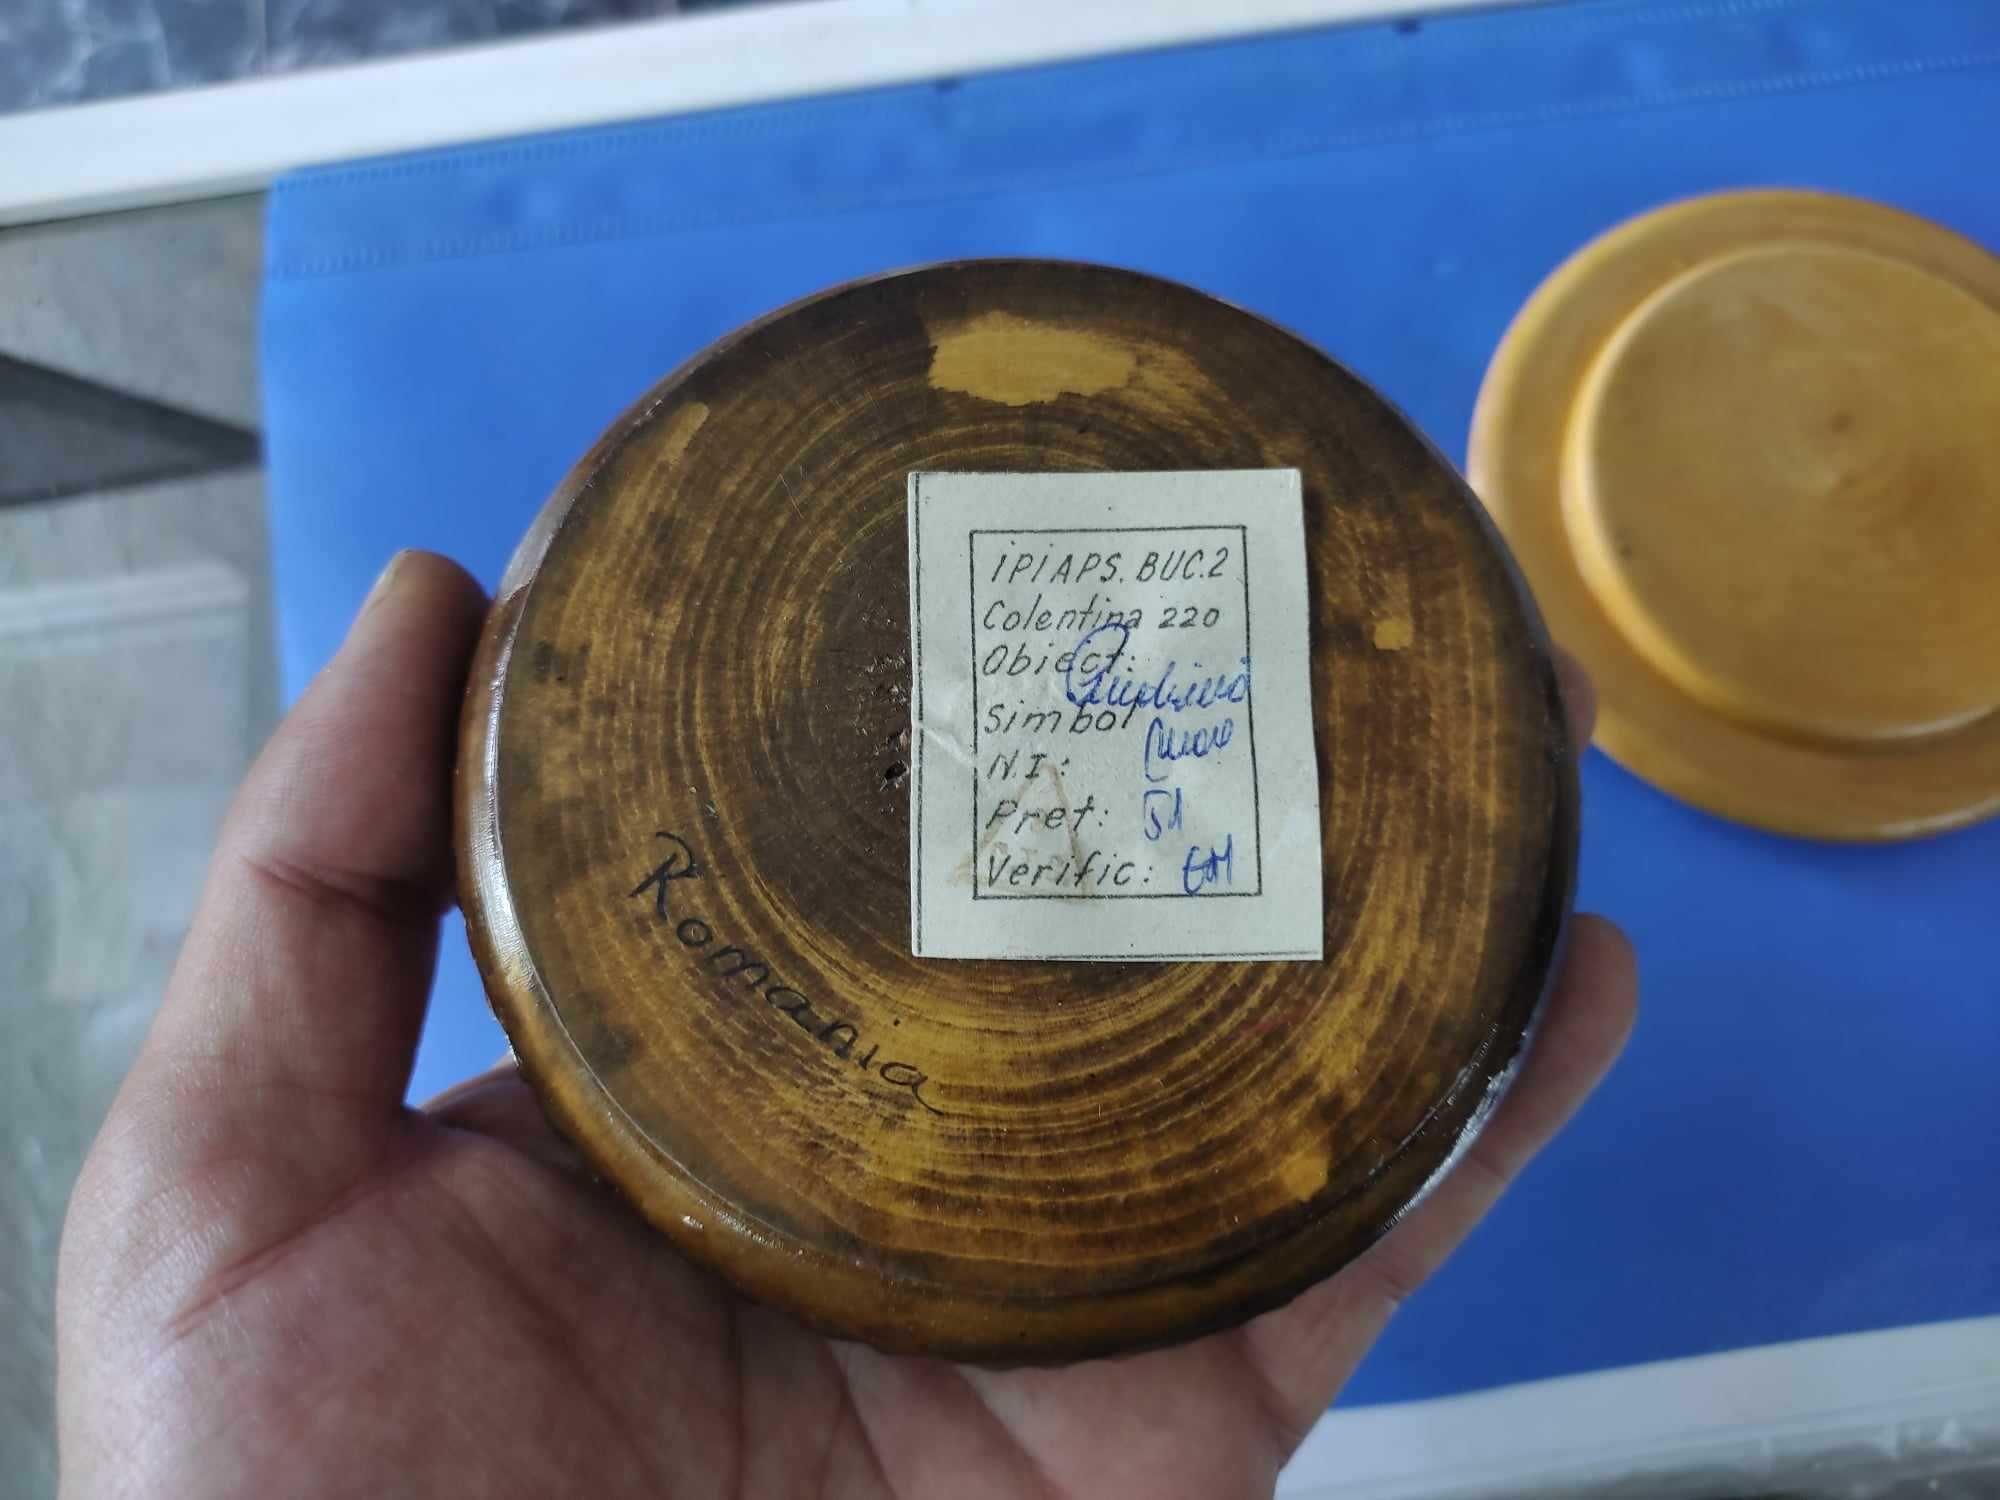 IPIAPS. BUC.2
Colentina 220
Obiect:
Simbol
N.I.:
Pret: 51
Verific:
Romania